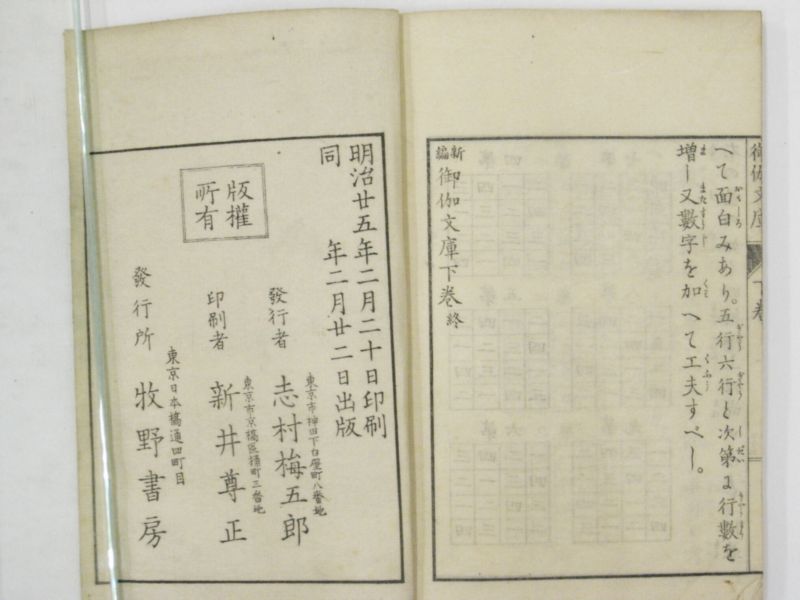 御伽文庫
下巻
へて面白みあり。五行六行と次第に行數を
増し又數字を加へて工夫すべし。
新編御伽文庫下巻終
明治廿五年二月二十日印刷
同年二月廿二日出版
版權所有
發行者
東京市神田下白壁町八番地
志村梅五郎
印刷者
東京市京橋區桶町三番地
新井尊正
發行所
東京日本橋通四町目
牧野書房